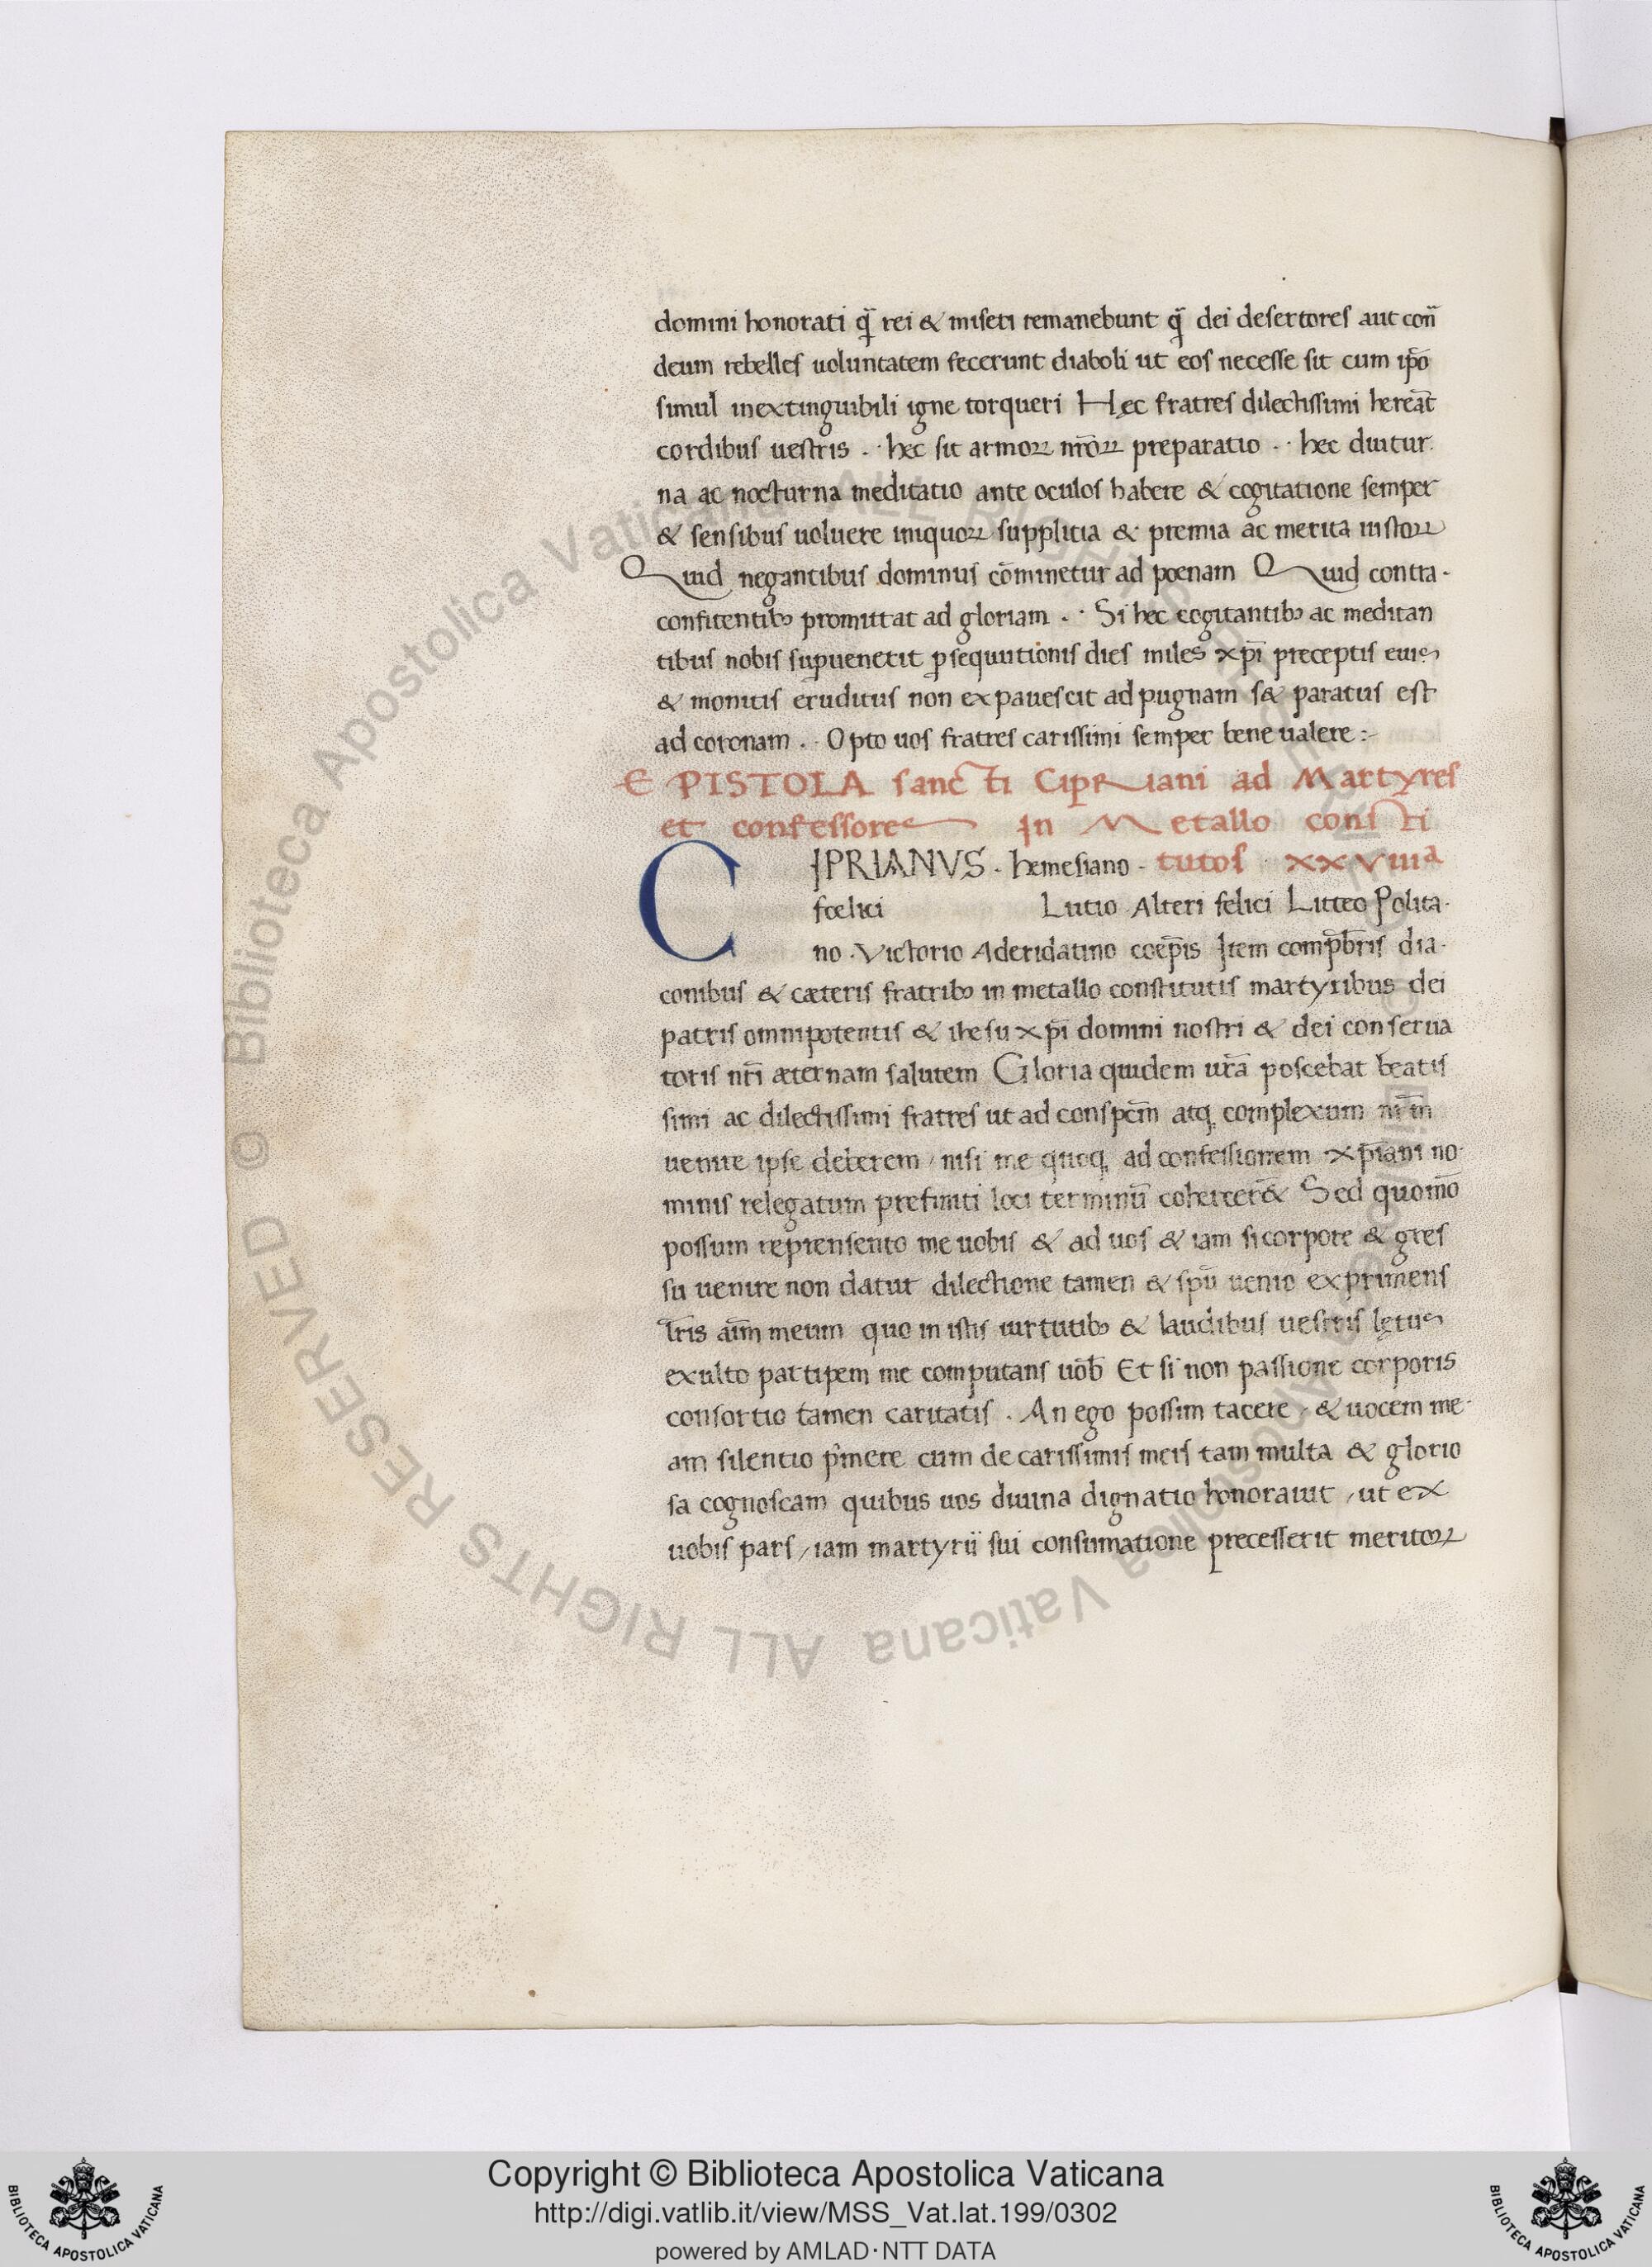 domini honorati q̃ rei & miseri remanebunt q̃ dei desertores aut con̄
deum rebelles uoluntatem fecerunt diaboli ut eos necesse sit cum ip̄o
simul inextinguibili igne torqueri Hęc fratres dilectissimi hereāt
cordibus uestris . · hec sit armoꝝ nr̄oꝝ preparatio . · hec diutur
na ac nocturna meditatio ante oculos habere & cogitatione semper
& sensibus uoluere iniquoꝝ supplicia & premia ac merita iustoꝝ
Quid negantibus dominus cōminetur ad poenam Quid contra·
confitentibꝫ promittat ad gloriam . · Si hec cogitantibꝫ ac meditan
tibus nobis supuenerit ꝑsequutionis dies miles xp̄i preceptis eius
& monitis eruditus non expauescit ad pugnam s& paratus est
ad coronam . · Opto uos fratres carissimi semper bene ualere :-
EPISTOLA sancti CipRiani ad Martyres
et confessores In Metallo consti
CIPRIANVS · hemesiano · tutos xxViiiª
foelici Lutio Alteri felici Litteo Polita·
no · Victorio Aderidatino coep̄is Item comp̄bris dia·
conibus & cæteris fratribꝫ in metallo constitutis martyribus dei
patris omnipotentis & ihesu xp̄i domini nostri & dei conserua
toris nr̄i æternam salutem Gloria quidem ur̄a poscebat beatis
simi ac dilectissimi fratres ut ad conspcm̄ atq; complexum
uenire ipse deberem / nisi me quoq; ad confessionem xp̄iani no·
minis relegatum prefiniti loci terminū cohercer& Sed quomō
possum reprensento me uobis & ad uos & iam si corpore & gres
su uenire non datur dilectione tamen & spū uenio exprimens
lr̄is aīm meum quo in istis uirtutibꝫ & laudibus uestris lętus
exulto partipem me computans uob̄ Et si non passione corporis
consortio tamen caritatis . An ego possim tacere / & uocem me·
am silentio p̄mere cum de carissimis meis tam multa & glorio
sa cognoscam quibus uos diuina dignatio honorauit / ut ex
uobis pars / iam martyrii sui consumatione precesserit meritoꝝ
© Biblioteca Apostolica Vaticana ALL RIGHTS RESERVED
Copyright © Biblioteca Apostolica Vaticana
http://digi.vatlib.it/view/MSS_Vat.lat.199/0302
powered by AMLAD·NTT DATA
BIBLIOTECA APOSTOLICA VATICANA
BIBLIOTECA APOSTOLICA VATICANA